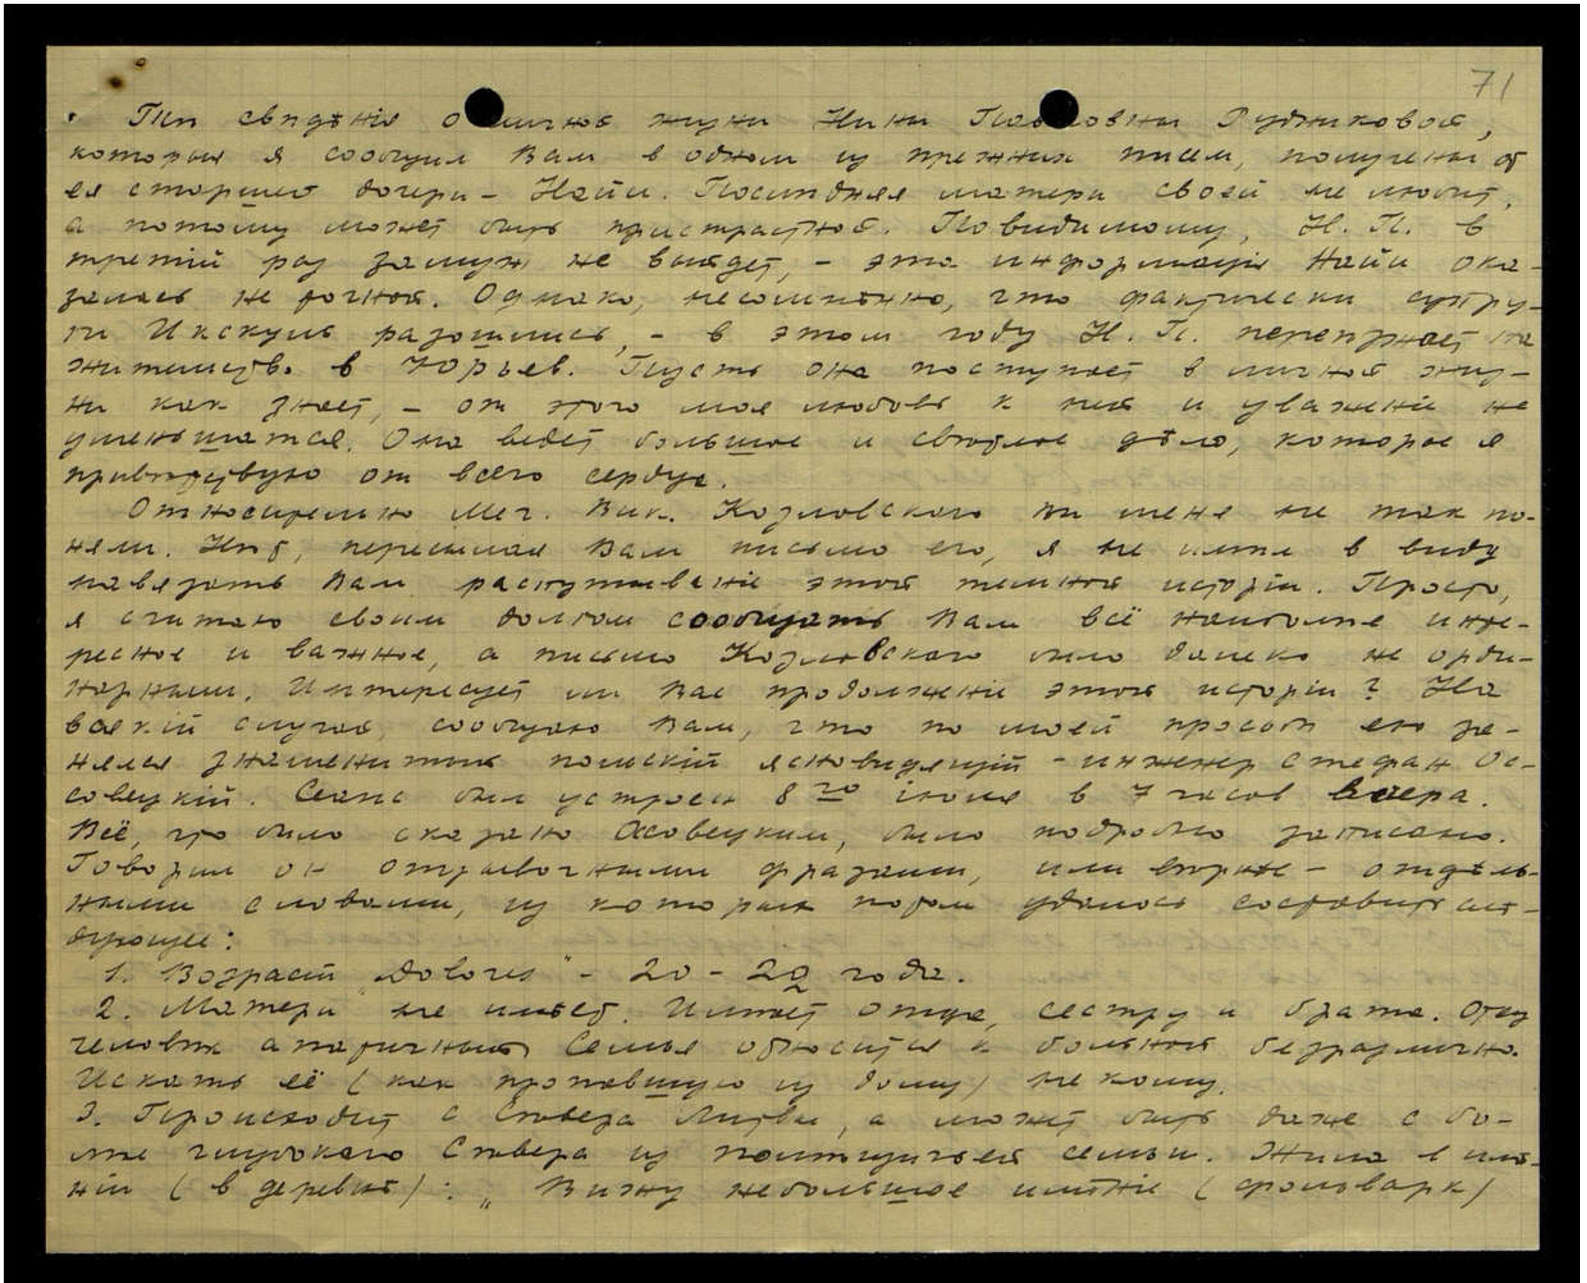 71
Тѣ свѣдѣнія о личной жизни Нины Павловны Рудниковой,
которыя я сообщил Вам в одном из прежних писем, получены от
ея старшей дочери - Найи. Послѣдняя матери своей не любит,
а потому может быть пристрастной. Повидимому, Н. П. в
третій раз замуж не выйдет, - эта информація Найи ока-
залась не точной. Однако, несомнѣнно, что фактически супру-
ги Икскуль разошлись, - в этом году Н. П. переѣзжает на
жительство в Юрьев. Пусть она поступает в личной жиз-
ни как знает, - от этого моя любовь к ней и уваженіе не
уменьшатся. Она ведет большое и свѣтлое дѣло, которое я
привѣтствую от всего сердца.
Относительно Меч. Вик. Козловского Вы меня не так по-
няли. Нѣт, пересылая Вам письмо его, я не имѣл в виду
навязать Вам распутываніе этой темной исторіи. Просто,
я считаю своим долгом сообщать Вам всё наиболѣе инте-
ресное и важное, а письмо Козловского было далеко не орди-
нарным. Интересует ли Вас продолженіе этой исторіи? На
всякій случай, сообщаю Вам, что по моей просьбѣ ею за-
нялся знаменитый польскій ясновидящій - инженер Стефан Ос-
совецкій. Сеанс был устроен 8го іюля в 7 часов вечера.
Всё, что было сказано Оссовецким, было подробно записано.
Говорил он отрывочными фразами, или вѣрнѣе - отдѣль-
ными словами, из которых потом удалось составить слѣ-
дующее:
1. Возраст „Dolores" - 20 - 22 года.
2. Матери не имѣет. Имѣет отца, сестру и брата. Отец
человѣк апатичный. Семья относится к больной безразлично.
Искать её (как пропавшую из дому) некому.
3. Происходит с Сѣвера Литвы, а может быть даже с бо-
лѣе глубокаго Сѣвера из помѣщичьей семьи. Жила в имѣ-
ніи (в деревнѣ): „Вижу небольшое имѣніе (фольварк)